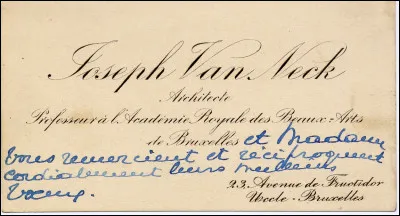 Joseph Van Neck
Architecte
Professeur à l'Académie Royale des Beaux-Arts
de Bruxelles et Madame
vous remercient et réciproquent
cordialement leurs meilleurs
Vœux.
23, Avenue de Fructidor
Uccle-Bruxelles